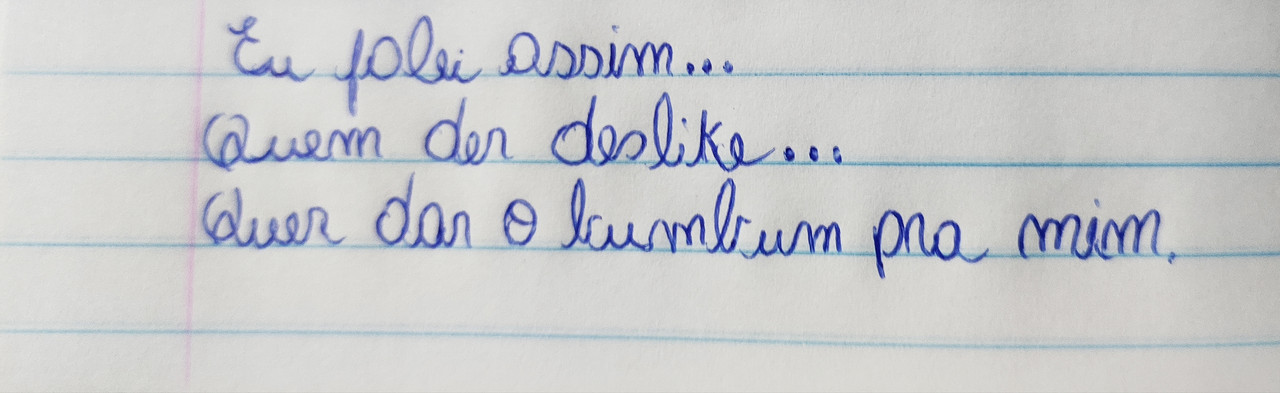 Eu falei assim...
Quem der deslike...
Quer dar o bumbum pra mim.